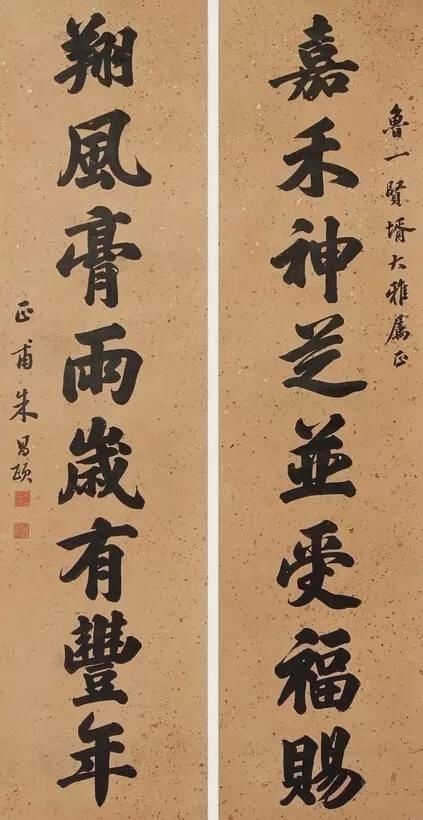 魯一賢壻大雅屬正
嘉禾神芝並受福賜
翔風膏雨歲有豐年
正甫朱昌頤